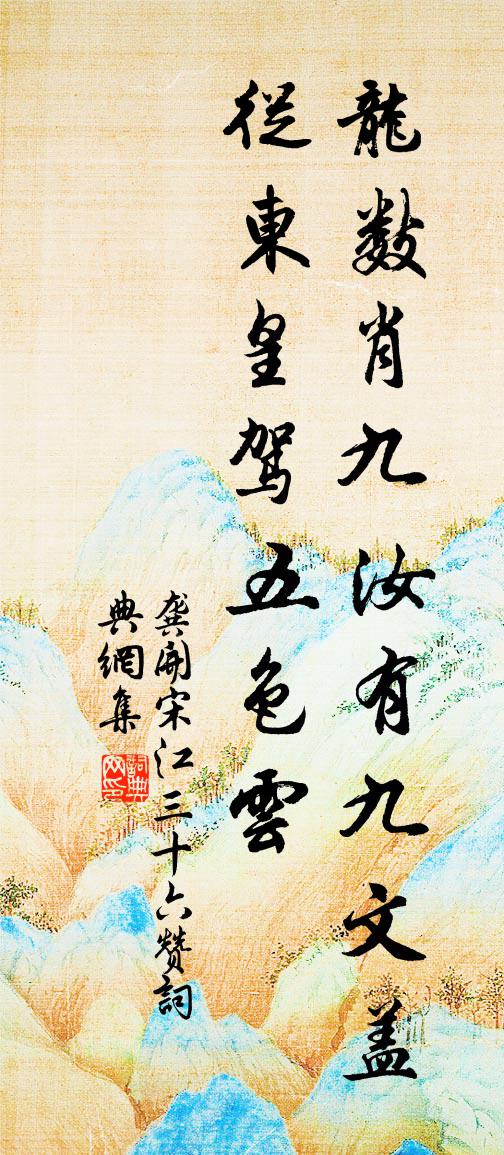 龍數肖九汝有九文盖
從東皇駕五色雲
龔開宋江三十六赞詞
典網集
詞典網印